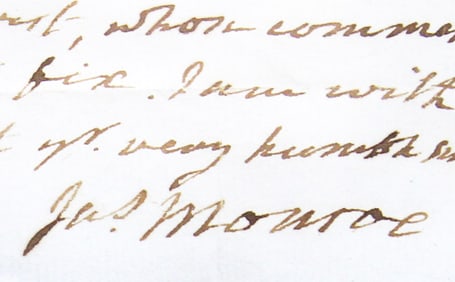 , whom comme
fix. I am with
yr. very humble
Jas. Monroe